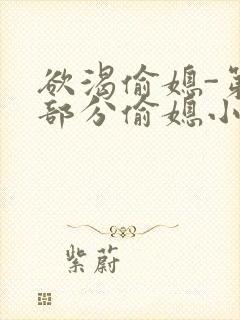 欲渴偷媳-第
部分偷媳小
紫蔚